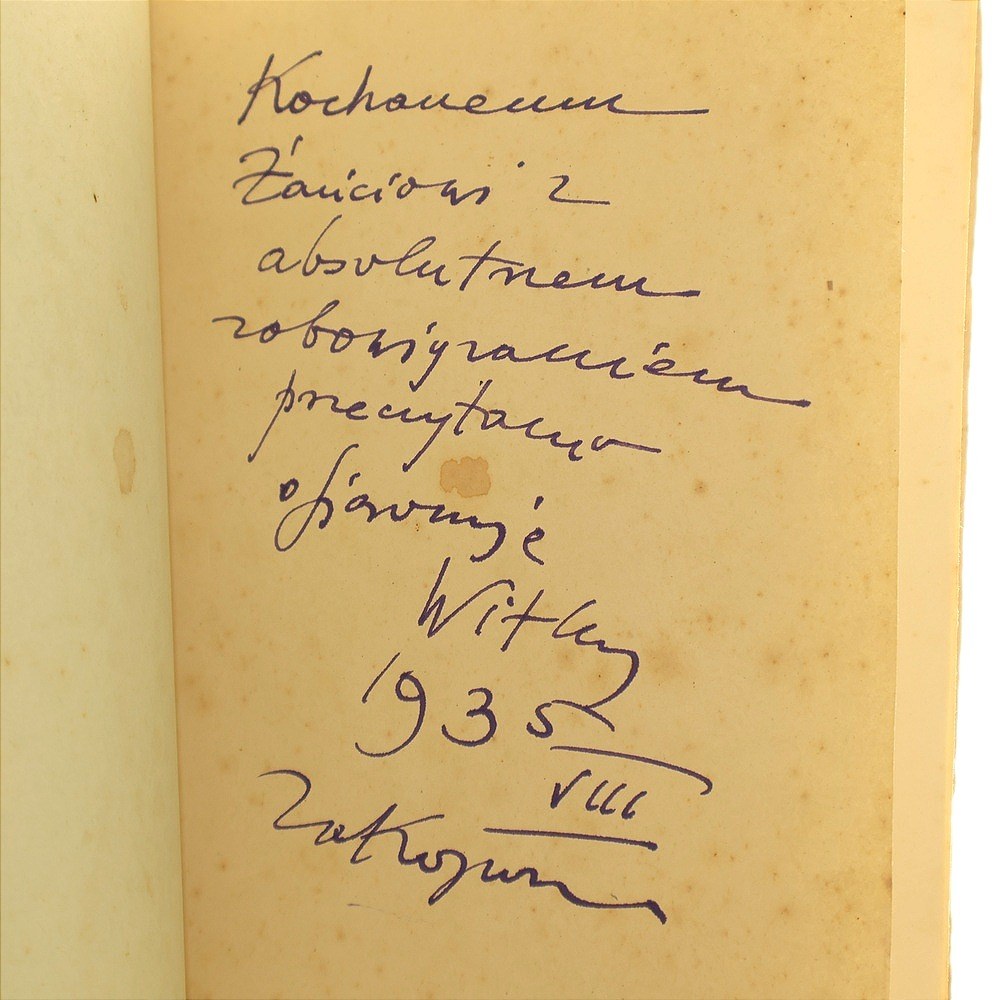 Kochanemu
Żańciowi z
absolutnem
zobowiązaniem
przeczytania
ofiarowuję
Witkacy
1935
VIII
Zakopane